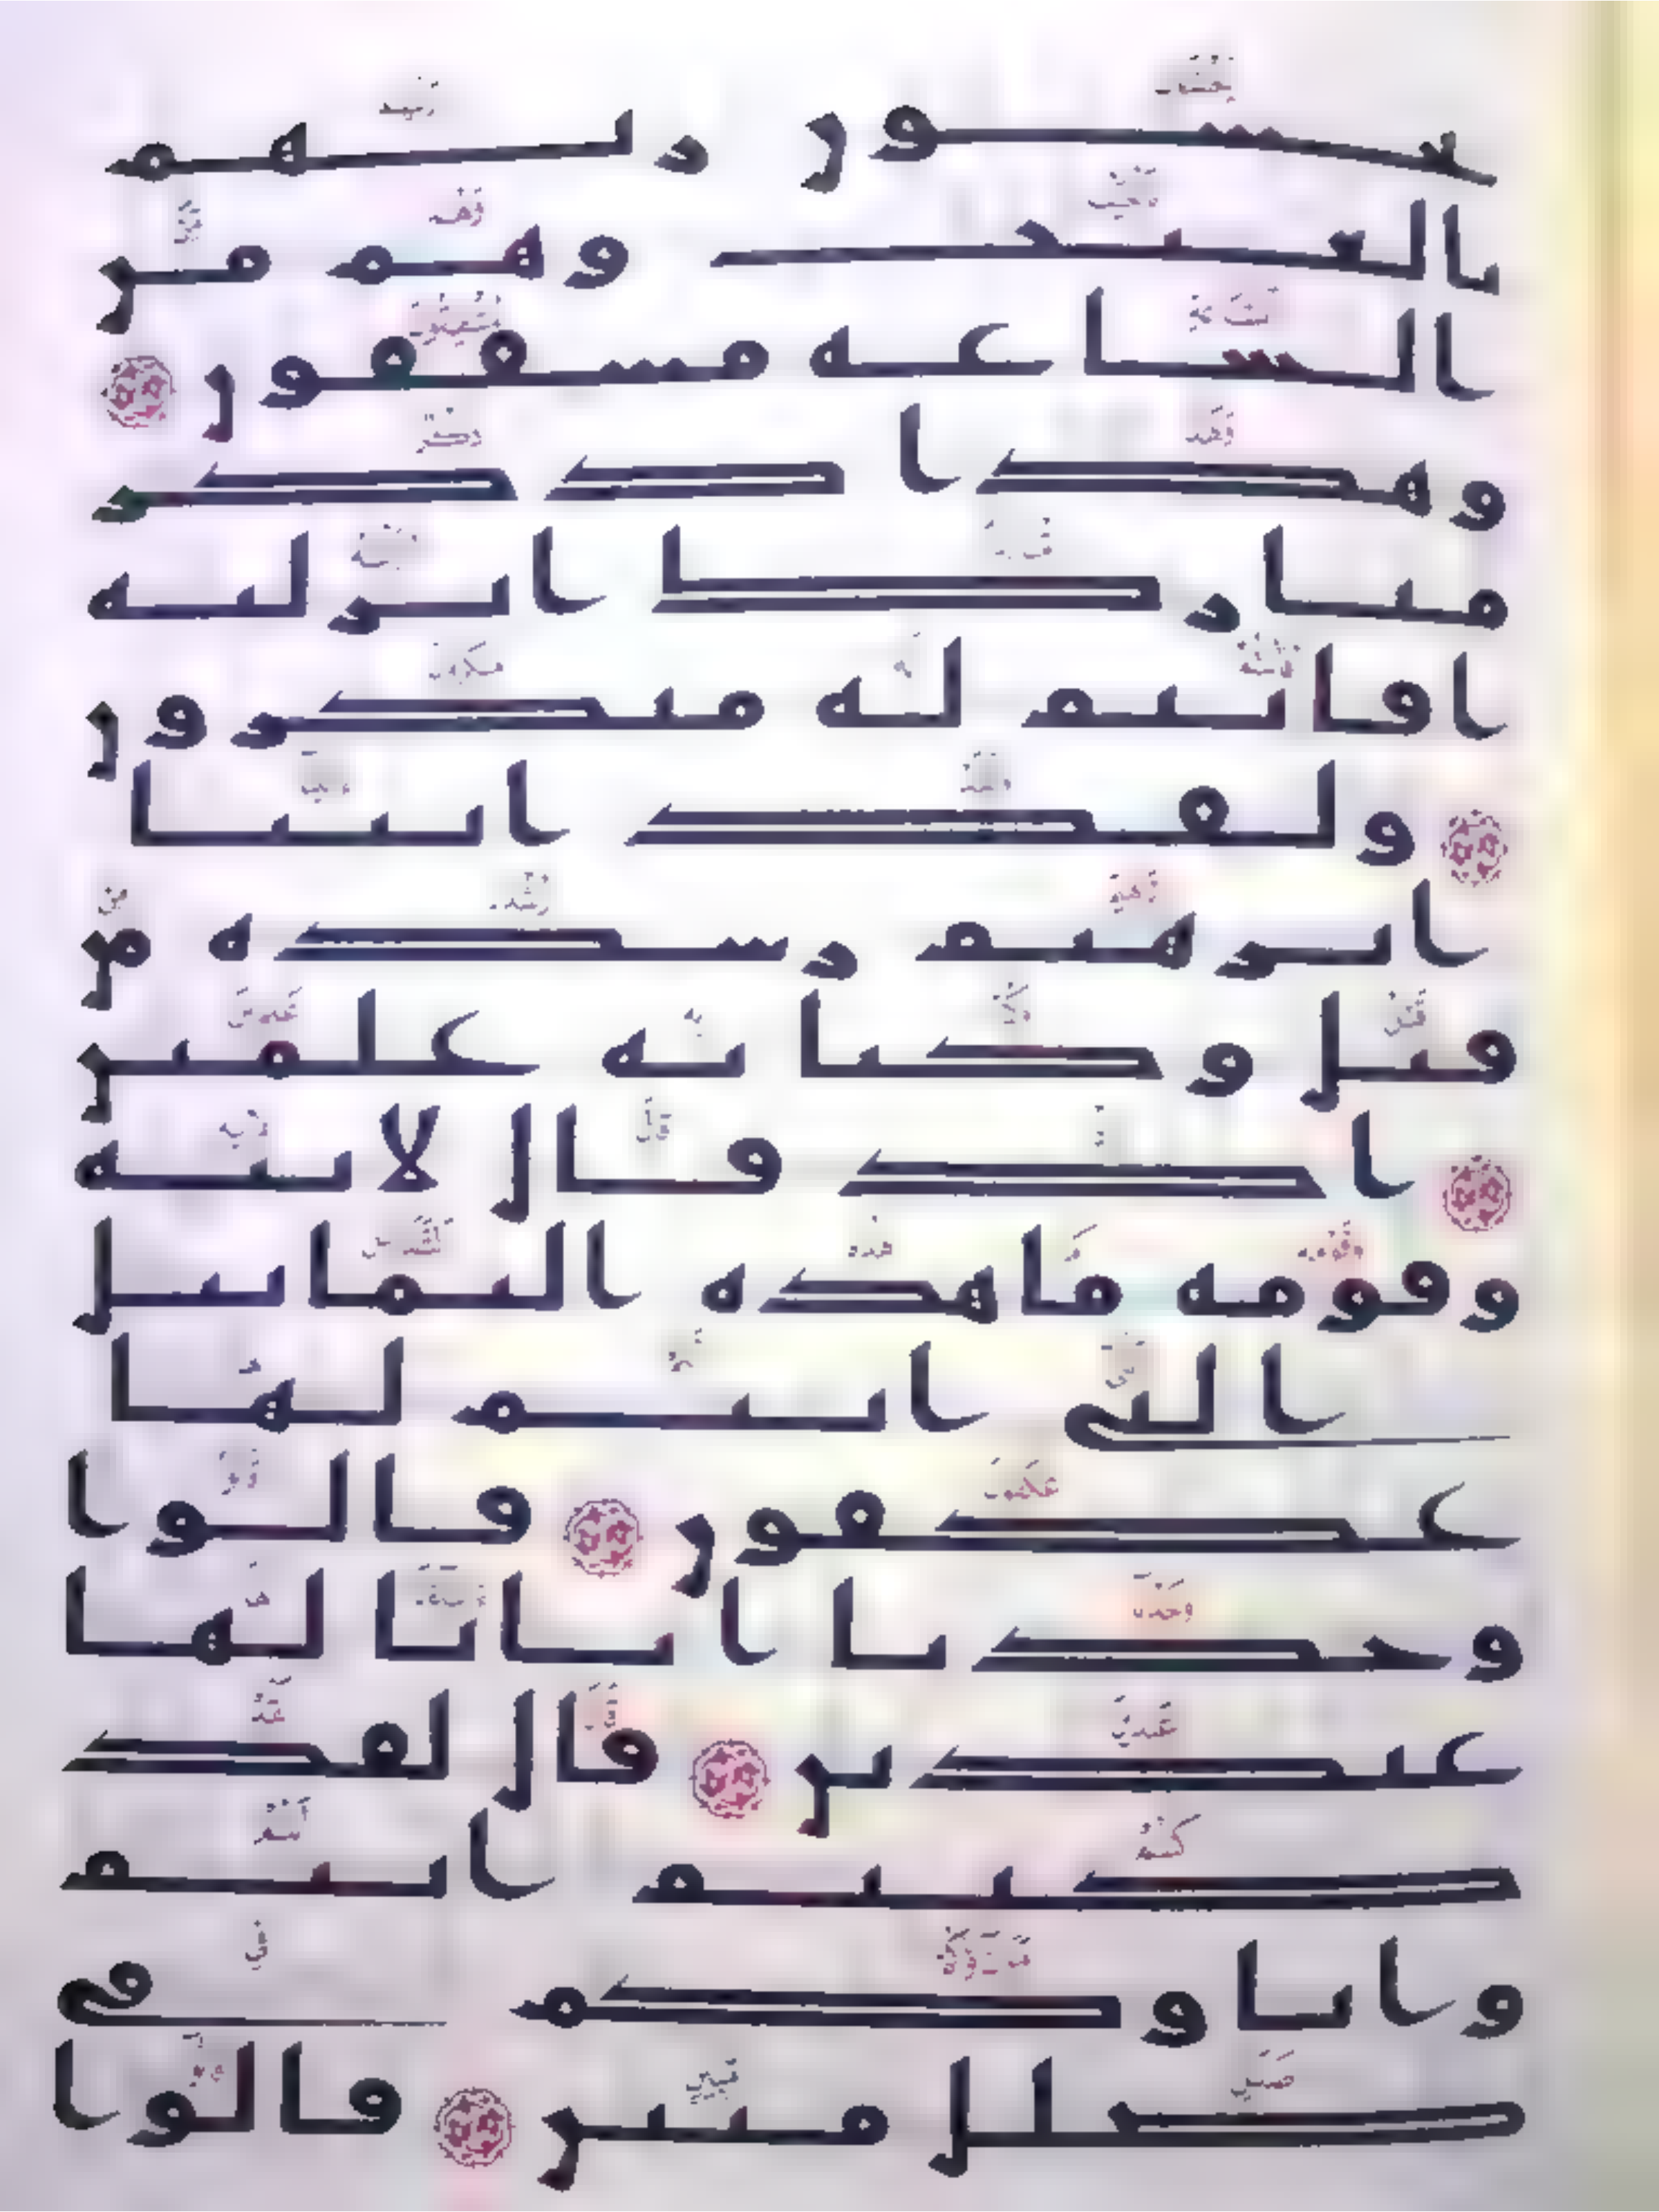 يخشون ربهم
بالغيب وهم من
الساعه مشفقون
وهذا ذكر
مبارك انزلنه
افانتم له منكرون
ولقد اتينا
ابرهيم رشده من
قبل وكنا به علمين
اذ قال لابيه
وقومه ما هذه التماثيل
التي انتم لها
عكفون قالوا
وجدنا ابانا لها
عبدين قال لقد
كنتم انتم
واباوكم في
ضلل مبين قالوا